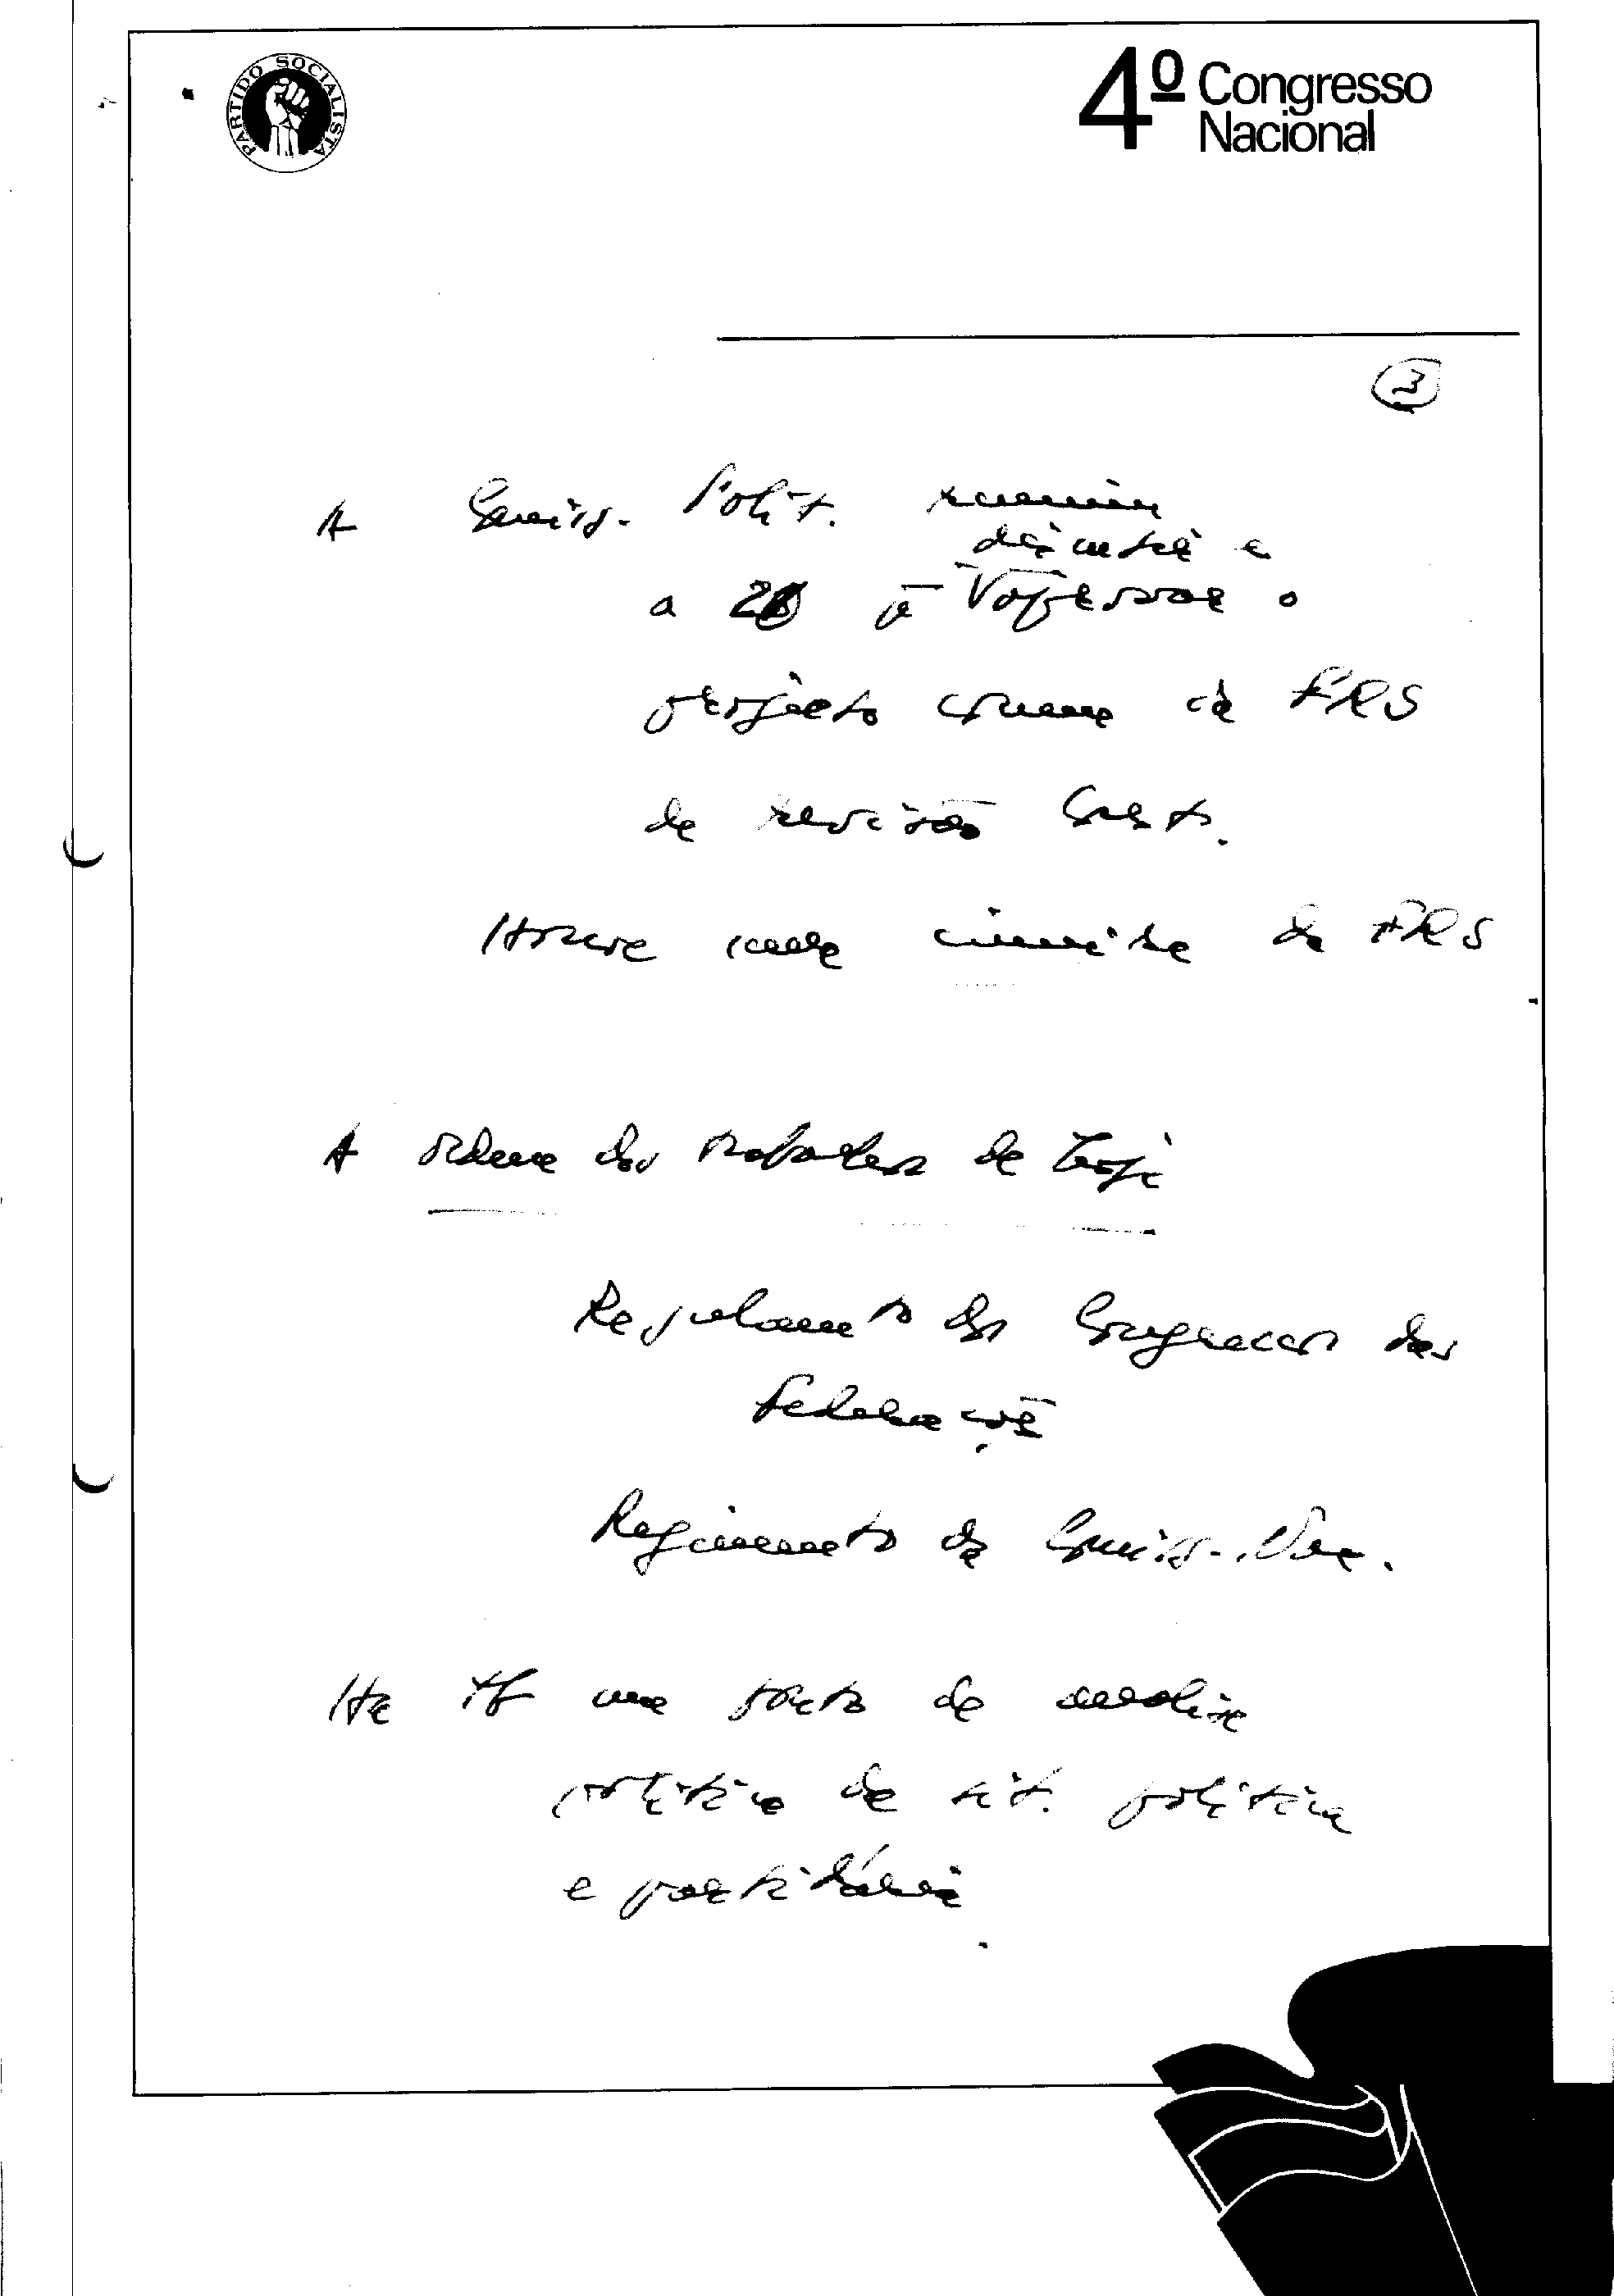 PARTIDO SOCIALISTA
4º Congresso
Nacional
3
A Comiss. Polít. reuniu
discutiu e
a 28 e
projecto comum da FRS
de revisão Const.
Houve uma cimeira da FRS
A ordem dos trabalhos de hoje
Regulamento dos Congressos das
Federações
Regimento da Comiss. Nac.
Há tb um ponto de análise
política da sit. política
e partidária